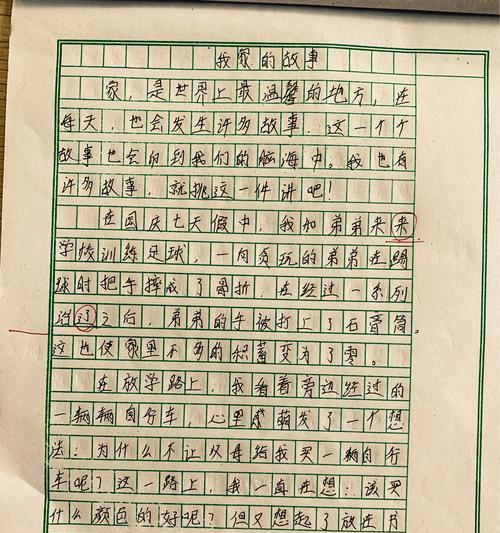 我家的故事
家,是世界上最温馨的地方,在
每天,也会发生许多故事,这一个个
故事也会印到我们的脑海中。我也有
许多故事,就挑这一件讲吧!
在国庆七天假中,我和弟弟来来
学校训练足球,一向贪玩的弟弟在踢
球时把手摔成了骨折,在经过一系列
治过之后,弟弟的手被打上了石膏筒。
这也使家里不多的积蓄变为了零。
在放学路上,我看着旁边经过的
一辆辆自行车,心里萌发了一个想
法:为什么不让父母给我买一辆自行
车呢?这一路上,我一直在想:该买
什么颜色的好呢?但又想起了放在